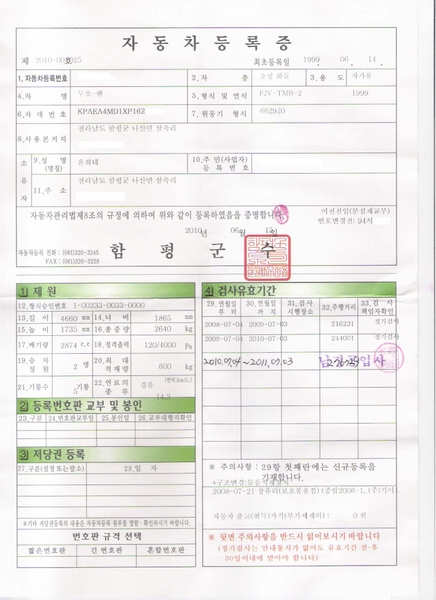 자동차등록증
제 2010-00 25
최초등록일 1999 . 06 . 14 .
1.자동차등록번호
2.차 종 소형 화물
3.용 도 자가용
4.차 명 무쏘-밴
5.형식 및 연식 FJV-TMB-2 1999
6.차 대 번 호 KPAEA4MD1XP162
7.원동기 형식 662920
8.사용본거지 전라남도 함평군 나산면 삼축리
소유자
9.성 명(명칭) 윤희태
10.주민(사업자)등록번호
11.주 소 전라남도 함평군 나산면 삼축리
자동차관리법제8조의 규정에 의하여 위와 같이 등록하였음을 증명합니다.
이전전입(분실재교부)
번호변경전:94서
2010년 06월 15일
자동차등록 전화 : (061)320-3245
FAX : (061)320-3228
함 평 군 수
1 제 원
12.형식승인번호 1-00233-0033-0000
13.길 이 4660 mm 14.너 비 1865 mm
15.높 이 1735 mm 16.총중량 2640 kg
17.배기량 2874 cc 18.정격출력 120/4000 Ps
19.승차정원 2 명 20.최대적재량 600 kg
21.기통수 5 기통 22.연료의종류 경유 (연비km/L) 14.3
2 등록번호판 교부 및 봉인
23.구분 24.번호판교부일 25.봉인일 26.교부대행자확인
3 저당권 등록
27.구분(설정 또는 말소) 28.일 자
*기타 저당권등록의 내용은 자동차등록 원부를 열람·확인하시기 바랍니다.
번호판 규격 선택
짧은번호판 긴 번호판 혼합번호판
4 검사유효기간
29.연월일부터 30.연월일까지 31.검사시행장소 32.주행거리 33.검사책임자확인
2008-07-04 2009-07-03 216231 정기검사
2009-07-04 2010-07-03 244001 정기검사
2010.07.04 ~ 2011.07.03
※ 주의사항 : 29항 첫째란에는 신규등록을 기재합니다.
*구조변경:동물적재장치
자동차 출고(취득)가격(부가세제외) : 0 원
※ 뒷면 주의사항을 반드시 읽어보시기 바랍니다
(정기검사는 안내통지가 없어도 유효기간 전·후
30일이내에 받아야 합니다)